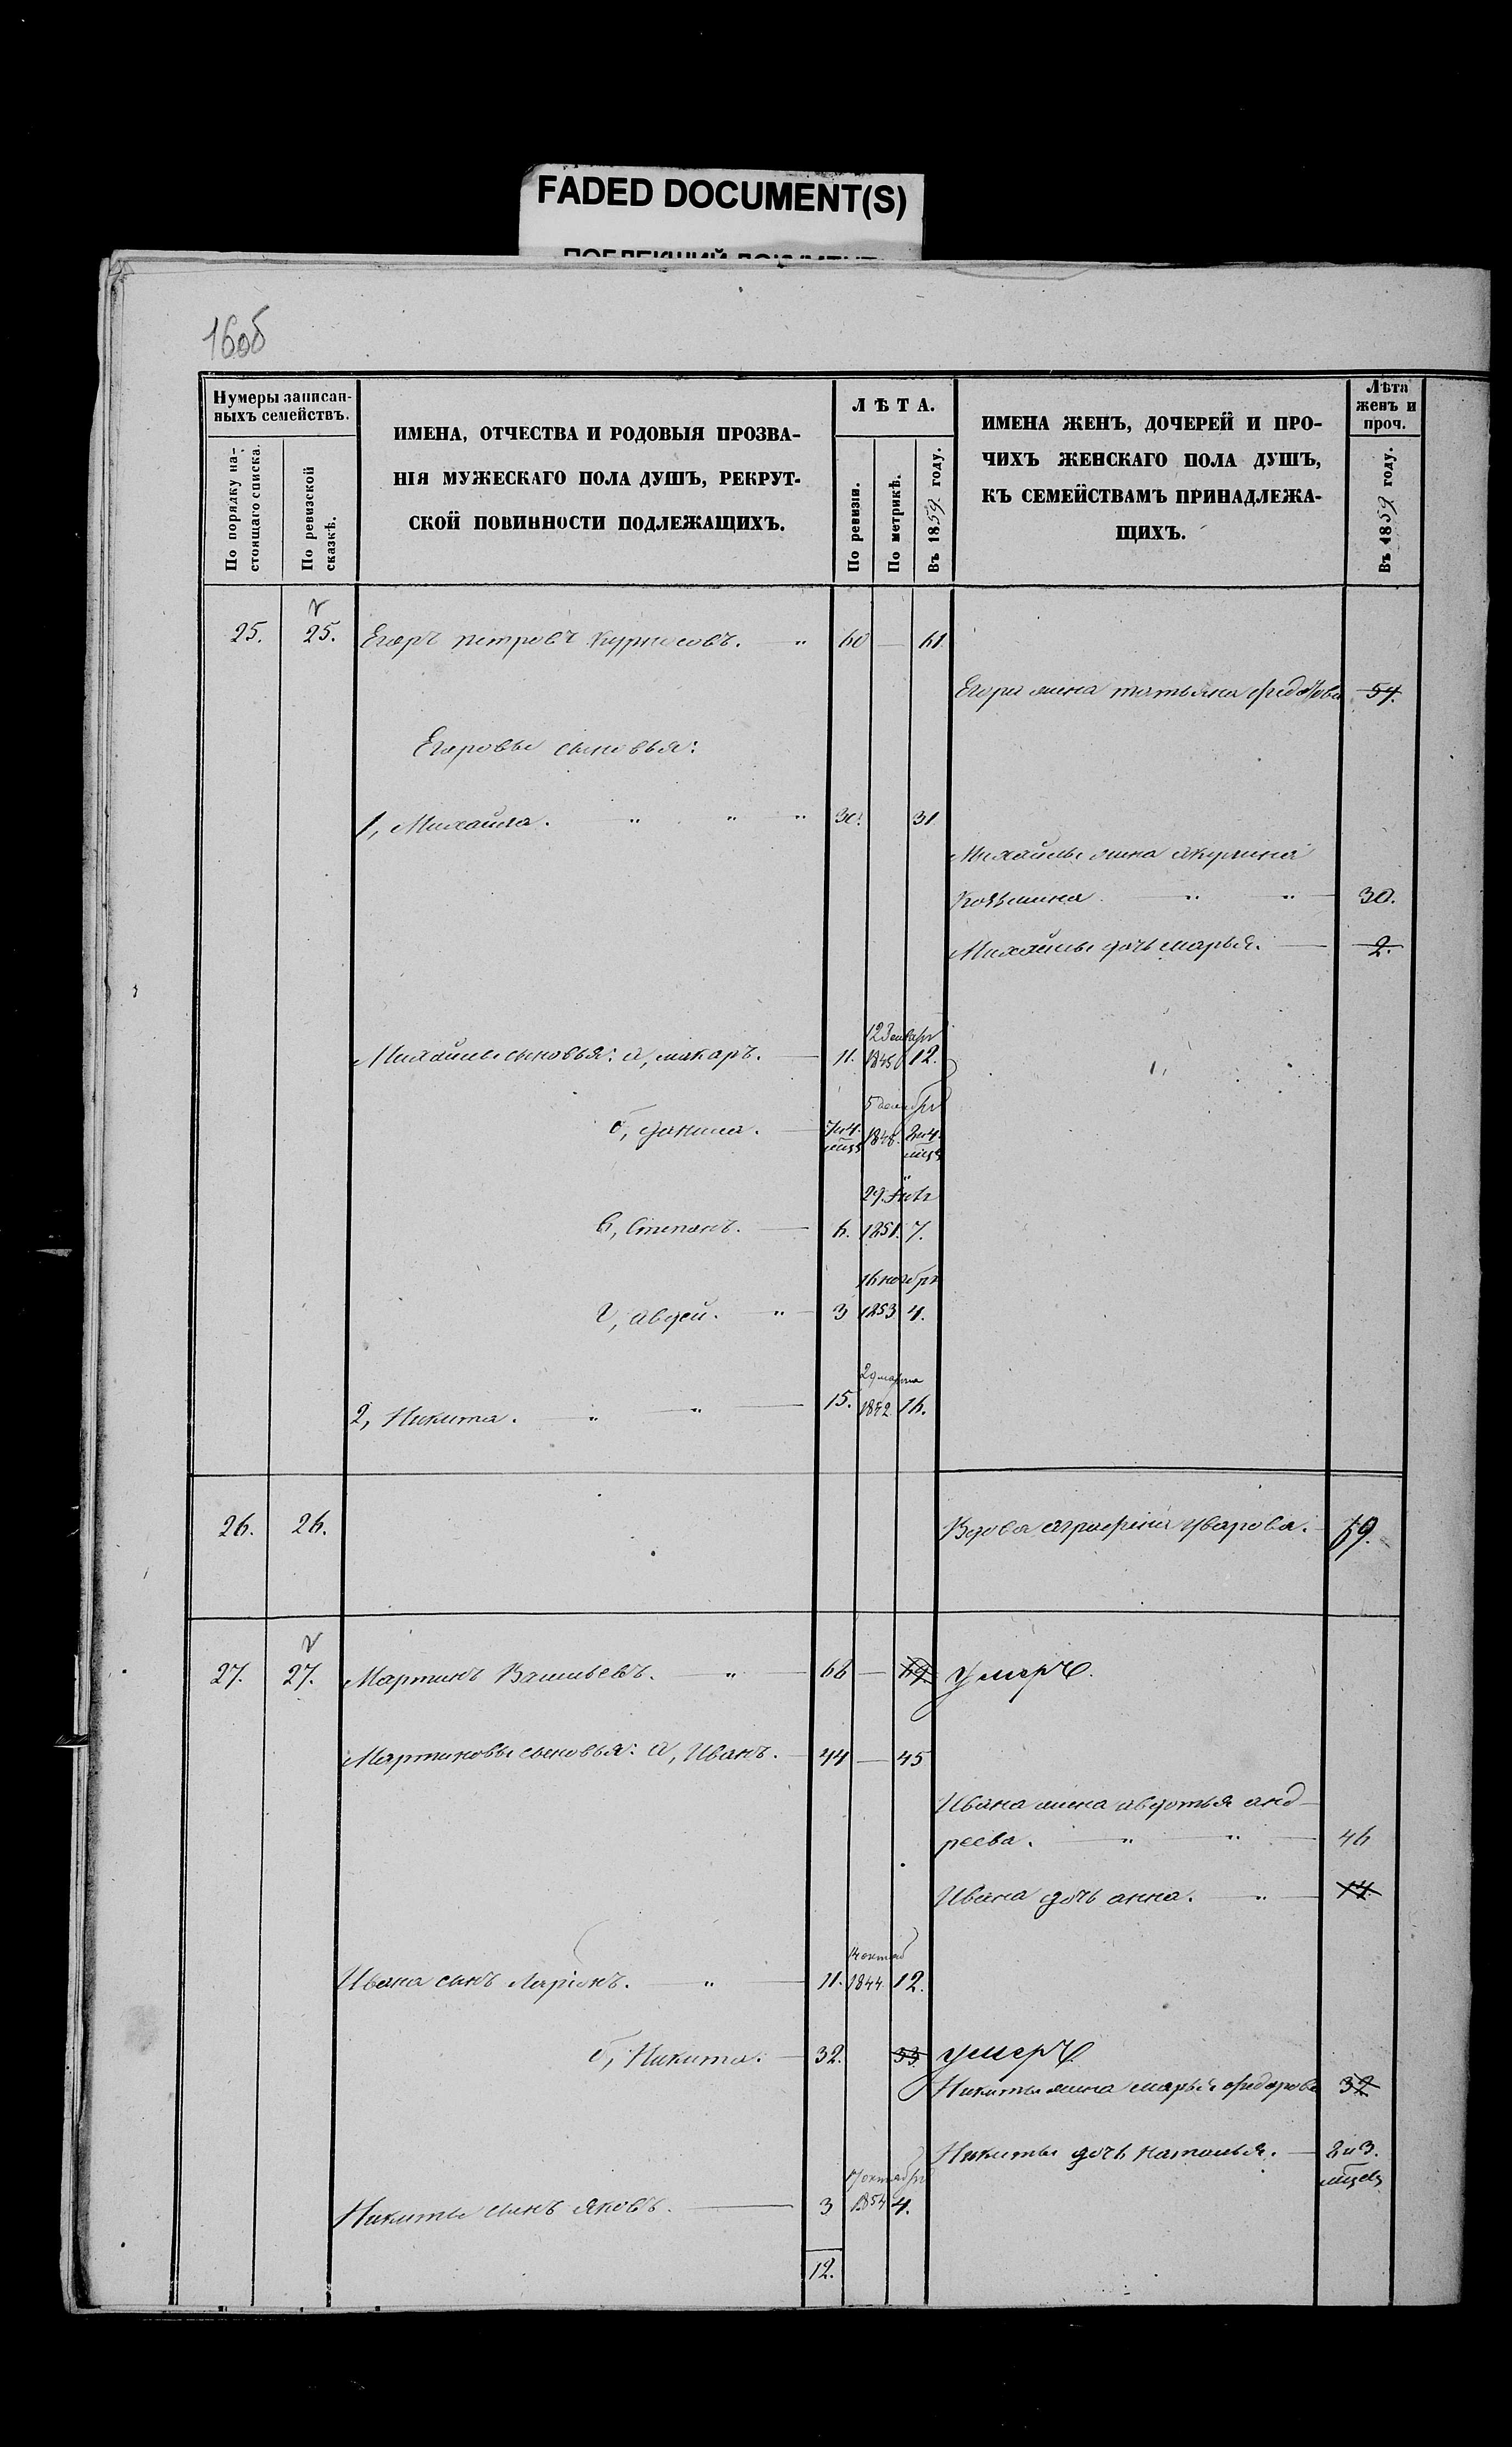 FADED DOCUMENT(S)
ПОБЛЕКШИЙ ДОКУМЕНТ
16об
Нумеры записан-
ныхъ семействъ.
По порядку на-
стоящаго списка.
По ревизской
сказкѣ.
ИМЕНА, ОТЧЕСТВА И РОДОВЫЯ ПРОЗВА-
НІЯ МУЖЕСКАГО ПОЛА ДУШЪ, РЕКРУТ-
СКОЙ ПОВИННОСТИ ПОДЛЕЖАЩИХЪ.
ЛѢТА.
По ревизіи.
По метрикѣ.
Въ 1859 году.
ИМЕНА ЖЕНЪ, ДОЧЕРЕЙ И ПРО-
ЧИХЪ ЖЕНСКАГО ПОЛА ДУШЪ,
КЪ СЕМЕЙСТВАМЪ ПРИНАДЛЕЖА-
ЩИХЪ.
Лѣта
женъ и
проч.
Въ 1859 году.
25. 25. Егоръ петровъ Курносовъ. " 60 — 61.
Егора жена татьяна федотова 54.
Егоровы сыновья:
1, Михайла. " " " 30. 31.
Михайлы жена акулина
Козьмина " " 30.
Михайлы дочь марья. 2.
12 Генваря
Михайлы сыновья: а, макаръ. 11. 1845 12.
5 декабря
б, данила. 1848. 8 и 4.
мцъ мцъ
29. Іюля
в, Степанъ. 6. 1851. 7.
16 ноября
г, авдей. " 3 1853 4.
29 марта
2, Никита. " " 15. 1842 16.
26. 26. Вдова аграфена Уварова. 59.
27. 27. Мартинъ Васильевъ. " 66 — умеръ.
Мартиновы сыновья: а, Иванъ. 44 — 45
Ивана жена авдотья анд-
реева. " " 46
Ивана дочь анна. " 14.
14 октяб
Ивана сынъ Ларіонъ. " 11. 1844 12.
б, Никита. 32. 33. умеръ.
Никиты жена марья федорова 32
Никиты дочь наталья. 8 и 3.
мцъ
17 октября
Никиты сынъ яковъ. 3 1854 4.
12.